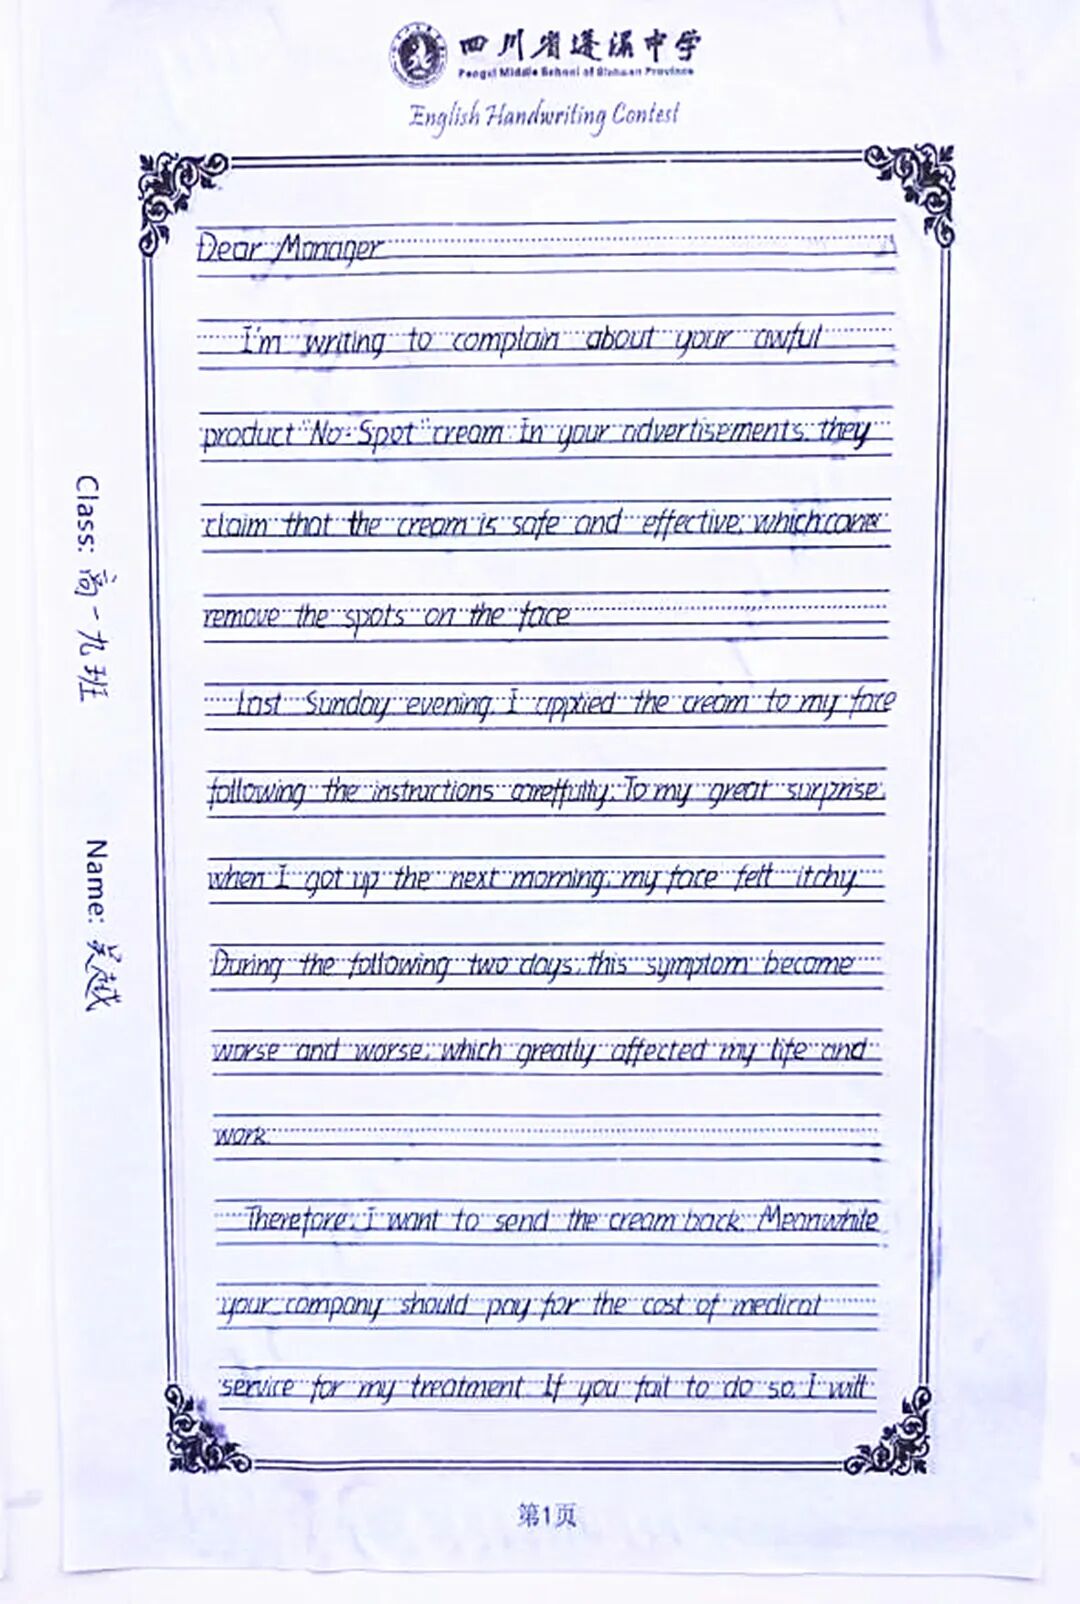 四川省蓬溪中学
Pengxi Middle School of Sichuan Province
English Handwriting Contest
Dear Manager
I'm writing to complain about your awful
product "No-Spot" cream. In your advertisements, they
claim that the cream is safe and effective, which
remove the spots on the face
Last Sunday evening, I applied the cream to my face
following the instructions carefully. To my great surprise,
when I got up the next morning, my face felt itchy.
During the following two days, this symptom become
worse and worse, which greatly affected my life and
work.
Therefore, I want to send the cream back. Meanwhile
your company should pay for the cost of medical
service for my treatment. If you fail to do so, I will
Class: 高一九班
Name: 吴越
第1页